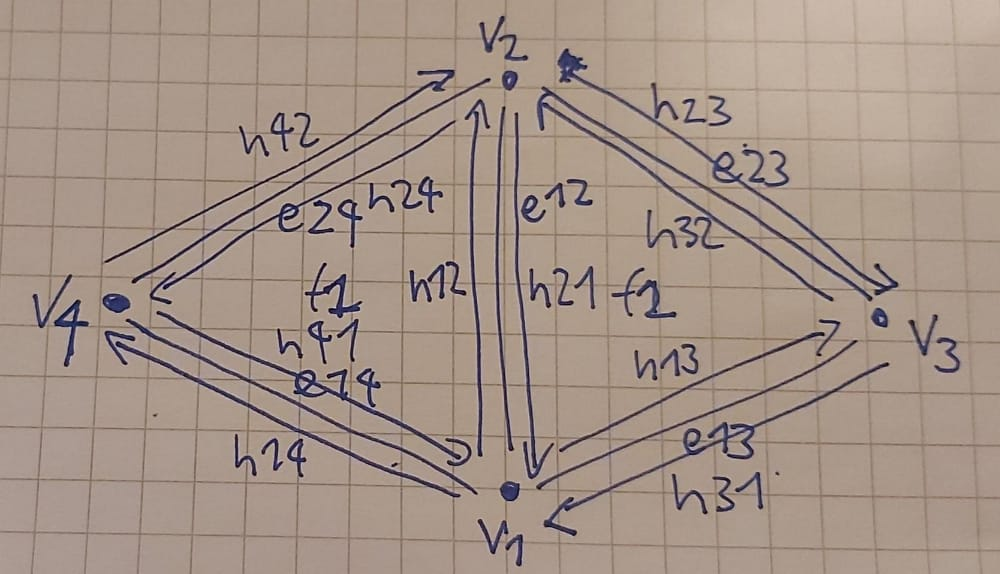 V2
h42
h23
e23
e24
h24
e12
h32
V4
f1
h12
h21
f2
V3
h41
e14
h13
h14
e13
h31
V1